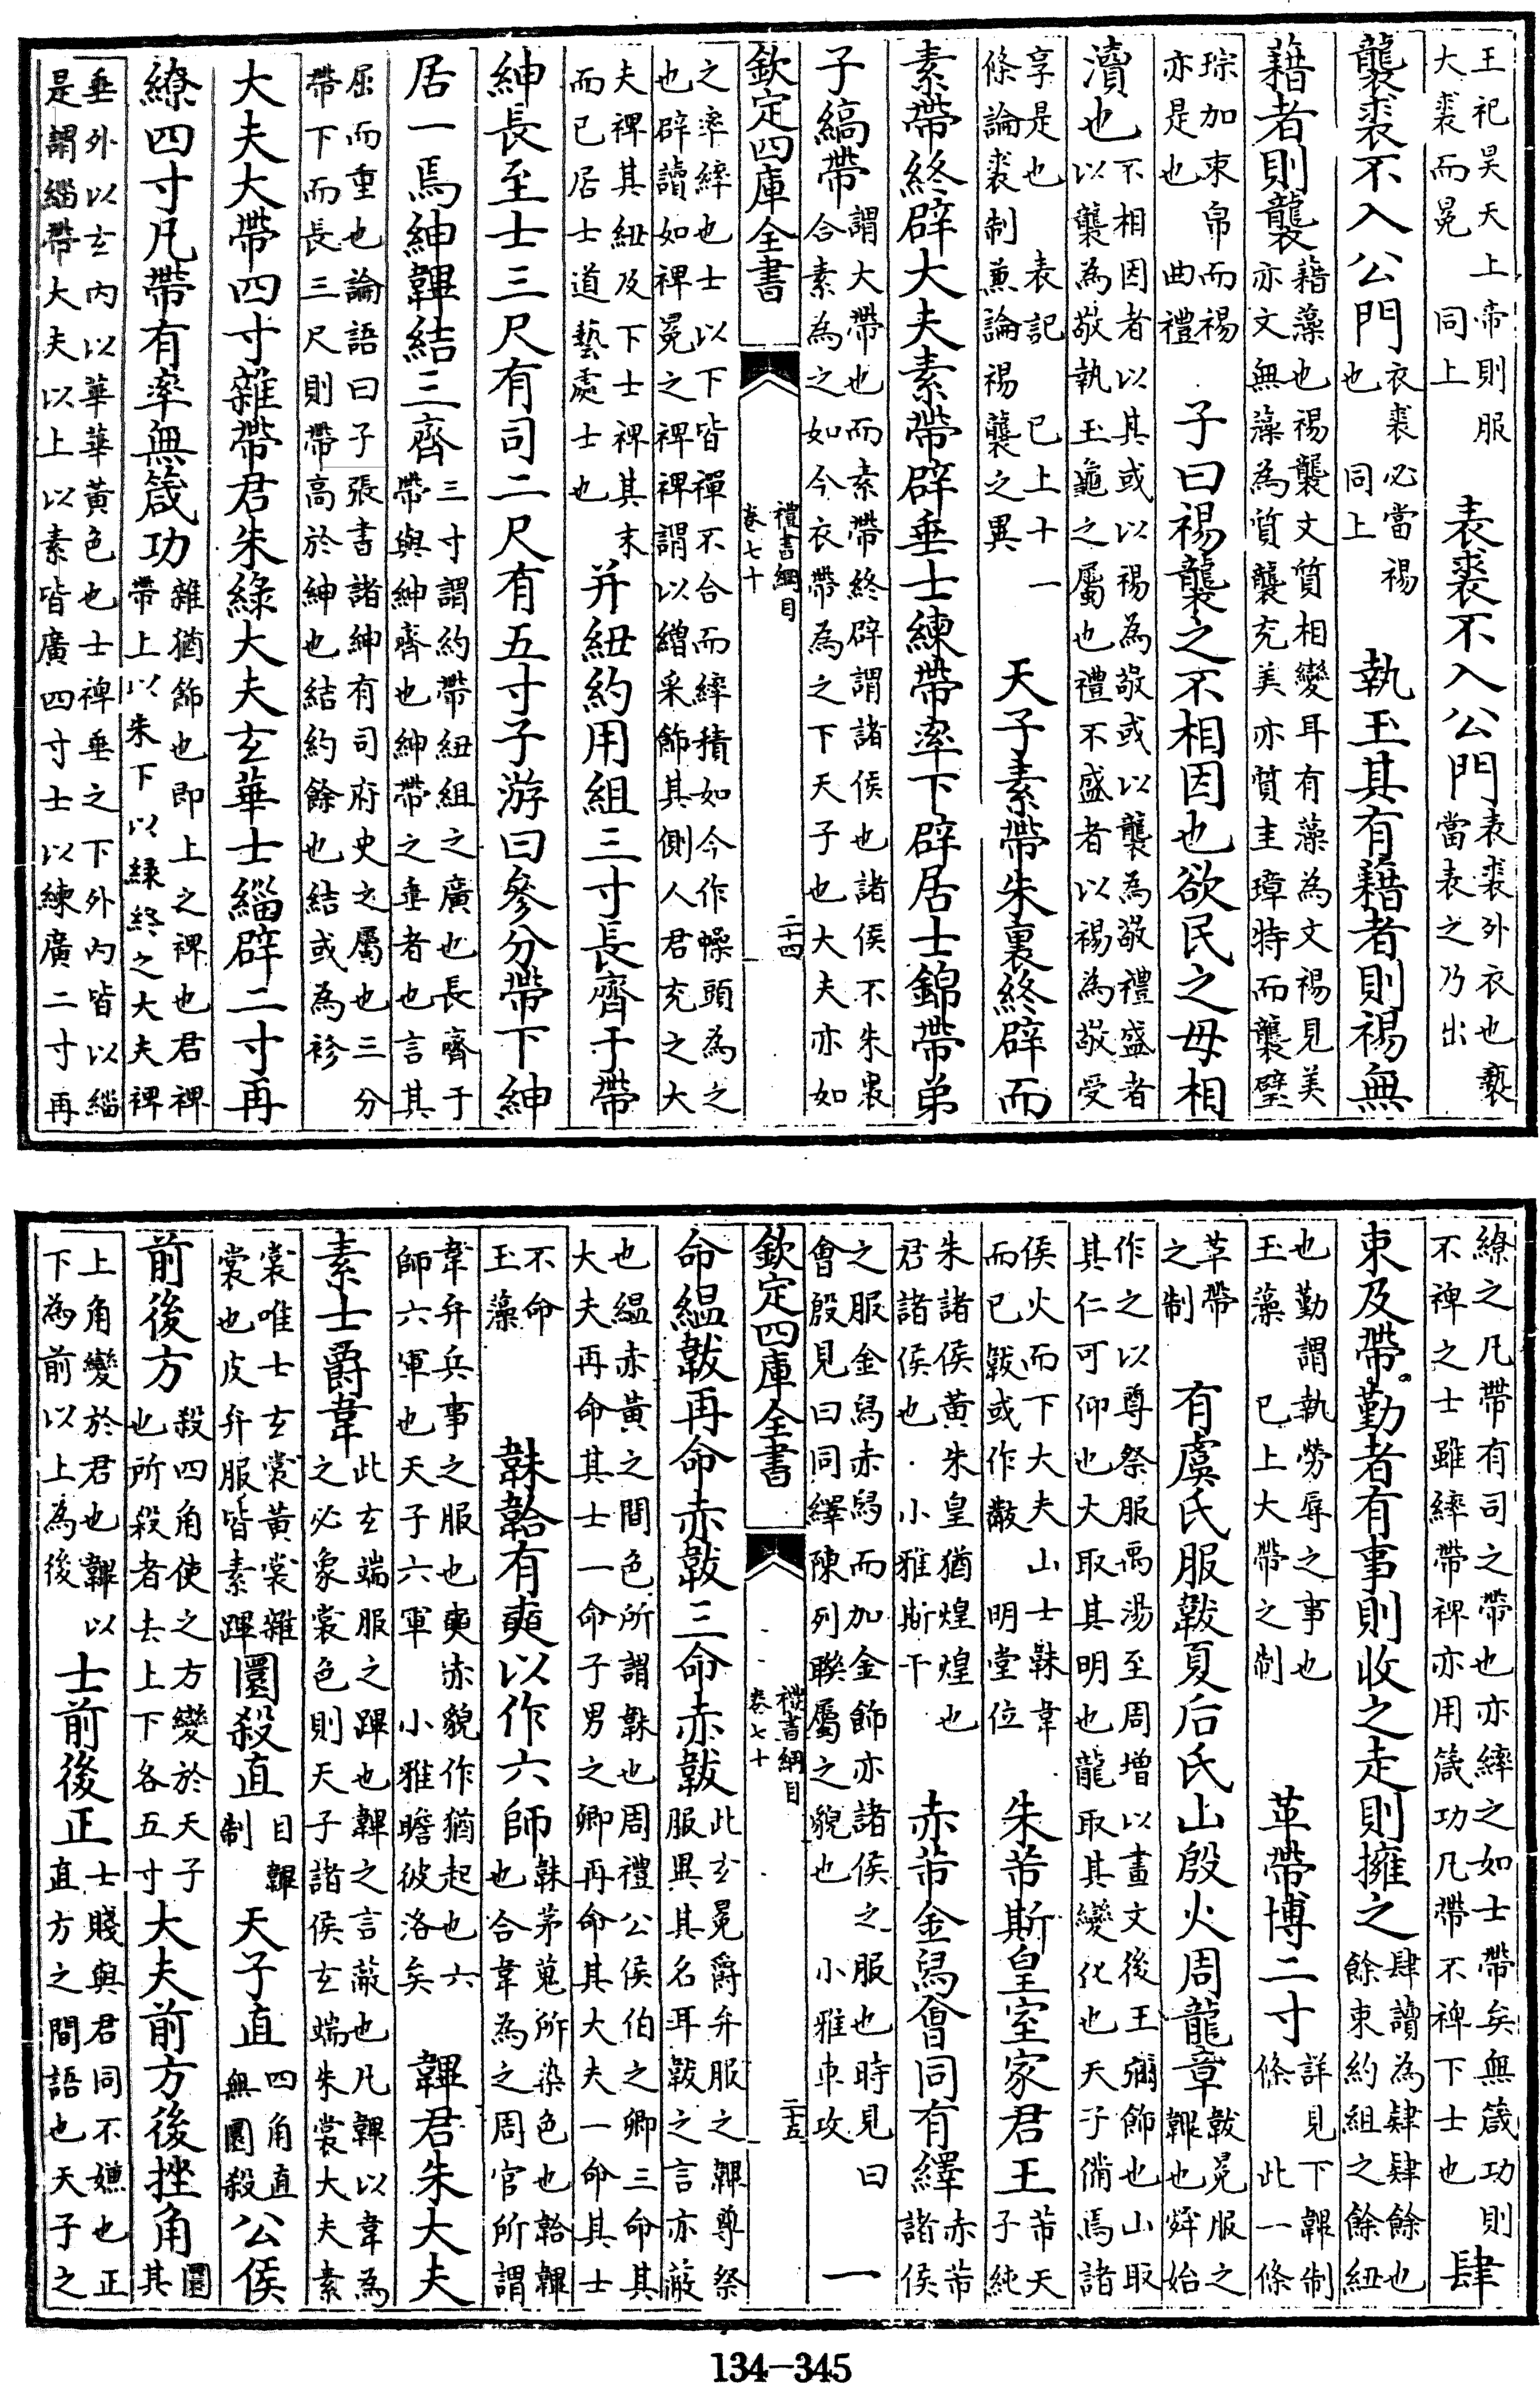 王祀昊天上帝則服大裘而冕 同上 表裘不入公門表裘外衣也褻當表之乃出
襲裘不入公門衣裘必當裼也 同上 執玉其有藉者則裼無
藉者則襲藉藻也裼襲文質相變耳有藻為文裼見美亦文無藻為質襲充美亦質圭璋特而襲璧
琮加束帛而裼亦是也 曲禮 子曰裼襲之不相因也欲民之毋相
瀆也不相因者以其或以裼為敬或以襲為敬禮盛者以襲為敬執玉龜之屬也禮不盛者以裼為敬受
享是也 表記 已上十一條論裘制兼論裼襲之異 天子素帶朱裏終辟而
素帶終辟大夫素帶辟垂士練帶率下辟居士錦帶弟
子縞帶謂大帶也而素帶終辟謂諸侯也諸侯不朱裏合素為之如今衣帶為之下天子也大夫亦如
欽定四庫全書 禮書綱目卷七十 二十四
之率繂也士以下皆襌不合而繂積如今作幧頭為之也辟讀如裨冕之裨裨謂以繒采飾其側人君充之大
夫裨其紐及下士裨其末而已居士道藝處士也 并紐約用組三寸長齊于帶
紳長至士三尺有司二尺有五寸子游曰參分帶下紳
居一焉紳韠結三齊三寸謂約帶紐組之廣也長齊于帶與紳齊也紳帶之垂者也言其
屈而重也論語曰子張書諸紳有司府史之屬也三分帶下而長三尺則帶高於紳也結約餘也結或為袗
大夫大帶四寸雜帶君朱綠大夫玄華士緇辟二寸再
繚四寸凡帶有率無箴功雜猶飾也即上之裨也君裨帶上以朱下以綠終之大夫裨
垂外以玄內以華華黃色也士裨垂之下外內皆以緇是謂緇帶大夫以上以素皆廣四寸士以練廣二寸再
繚之凡帶有司之帶也亦繂之如士帶矣無箴功則不裨之士雖繂帶裨亦用箴功凡帶不裨下士也 肆
束及帶勤者有事則收之走則擁之肆讀為肄肄餘也餘束約組之餘紐
也勤謂執勞辱之事也玉藻 已上大帶之制 革帶博二寸詳見下韠制條 此一條
革帶之制 有虞氏服韍夏后氏山殷火周龍章韍冕服之韠也舜始
作之以尊祭服禹湯至周增以畫文後王彌飾也山取其仁可仰也火取其明也龍取其變化也天子備焉諸
侯火而下大夫山士韎韋而已韍或作黻 明堂位 朱芾斯皇室家君王芾天子純
朱諸侯黃朱皇猶煌煌也君諸侯也 小雅斯干 赤芾金舄會同有繹赤芾諸侯
之服金舄赤舄而加金飾亦諸侯之服也時見曰會殷見曰同繹陳列聯屬之貌也 小雅車攻 一
欽定四庫全書 禮書綱目卷七十 二十五
命縕韍再命赤韍三命赤韍此玄冕爵弁服之韠尊祭服異其名耳韍之言亦蔽
也縕赤黃之間色所謂韎也周禮公侯伯之卿三命其大夫再命其士一命子男之卿再命其大夫一命其士
不命 玉藻 韎韐有奭以作六師韎茅蒐所染色也韐韠也合韋為之周官所謂
韋弁兵事之服也奭赤貌作猶起也六師六軍也天子六軍 小雅瞻彼洛矣 韠君朱大夫
素士爵韋此玄端服之韠也韠之言蔽也凡韠以韋為之必象裳色則天子諸侯玄端朱裳大夫素
裳唯士玄裳黃裳雜裳也皮弁服皆素韠圜殺直目韠制 天子直四角直無圜殺公侯
前後方殺四角使之方變於天子也所殺者去上下各五寸大夫前方後挫角圜其
上角變於君也韠以下為前以上為後 士前後正士賤與君同不嫌也正直方之間語也天子之
134-345